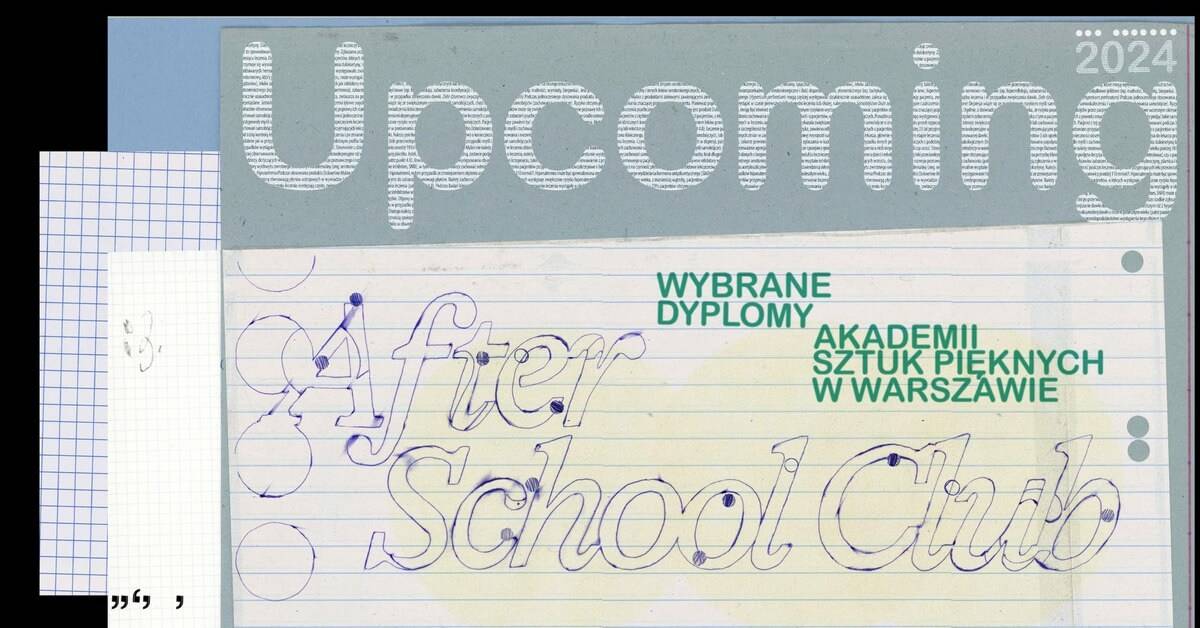 Upcoming
2024
WYBRANE
DYPLOMY
AKADEMII
SZTUK PIĘKNYCH
W WARSZAWIE
After
School Club